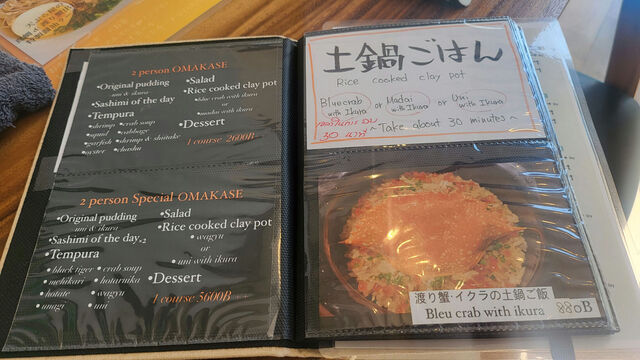 2 person OMAKASE
•Original pudding
uni & ikura
•Sashimi of the day
•Tempura
•shrimp •crab soup
•squid •cabbage
•garfish •shrimp & shiitake
•oyster •chashu
•Salad
•Rice cooked clay pot
•blue crab with ikura
or
•madai with ikura
•Dessert
1 course 2600B
2 person Special OMAKASE
•Original pudding
uni & ikura
•Sashimi of the day×2
•Tempura
•black tiger •crab soup
•mehikari •hotaruika
•hotate •wagyu
•unagi •uni
•Salad
•Rice cooked clay pot
•wagyu
or
•uni with ikura
•Dessert
1 course 5600B
土鍋ごはん
Rice cooked clay pot
Blue crab with ikura or Madai with Ikura or Uni with Ikura
30 นาที
~Take about 30 minutes~
渡り蟹・イクラの土鍋ご飯
Bleu crab with ikura 880B